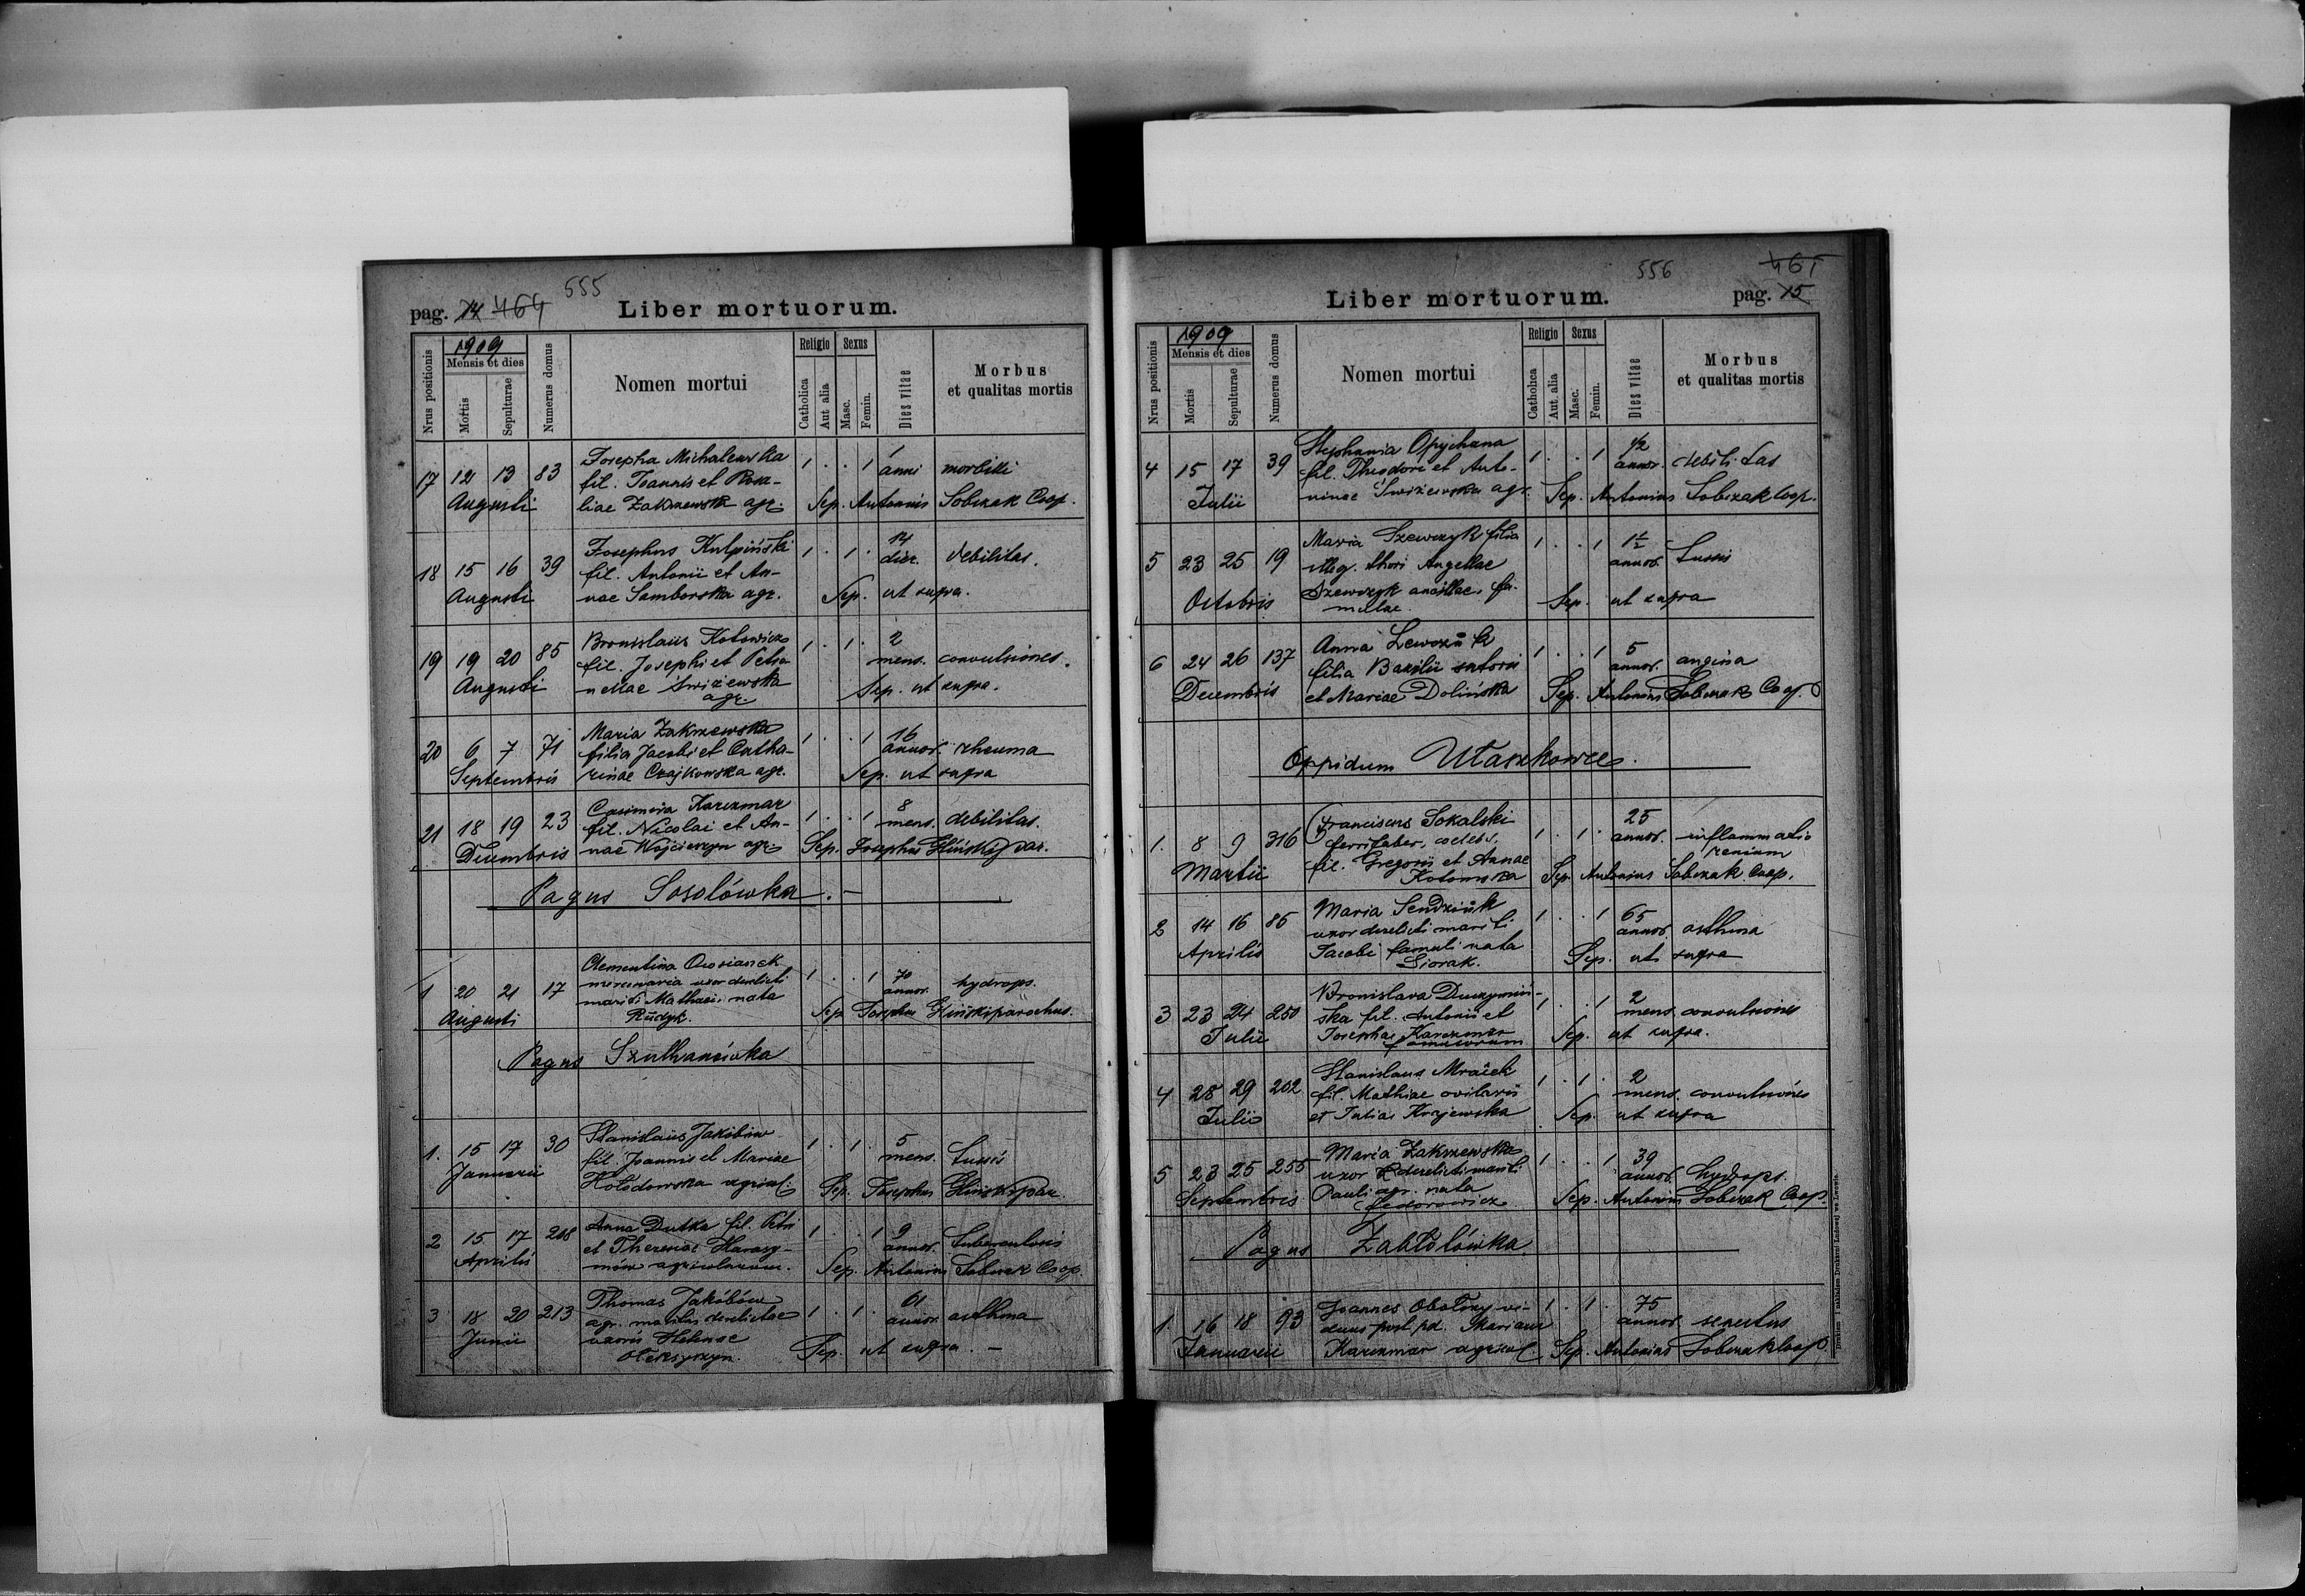 555
pag. 14 464 Liber mortuorum.
Nrus positionis
1909
Mensis et dies
Mortis
Sepulturae
Numerus domus
Nomen mortui
Religio
Catholica
Aut alia
Sexus
Masc.
Femin.
Dies vitae
Morbus
et qualitas mortis
17 12 13 83 Josepha Michalewska 1 . . 1 1 anni morbilli
Augusti fil. Joannis et Rosa-
liae Zakrzewska agr. Sep. Antonius Sobczak Coop.
18 15 16 39 Josephus Kulpiński 1 . 1 . 14 dier. debilitas.
Augusti fil. Antonii et An-
nae Samborska agr. Sep. ut supra.
19 19 20 85 Bronislaus Kotowicz 1 . 1 . 2 mens. convulsiones.
Augusti fil. Josephi et Petro-
nellae Świżewska Sep. ut supra.
agr.
20 6 7 71 Maria Zakrzewska 1 . . 1 16 annor. rheuma
Septembris filia Jacobi et Catha-
rinae Czajkowska agr. Sep. ut supra
21 18 19 23 Casimira Karczmar 1 . . 1 8 mens. debilitas.
Decembris fil. Nicolai et An-
nae Wojciesyn agr. Sep. Josephus Gliński par.
Pagus Sosolówka.
1 20 21 17 Clementina 1 . . 1 70 annor. hydrops.
Augusti mercenaria uxor derelicti
mariti Mathaei nata Sep. Josephus Gliński parochus.
Rudyk.
Pagus Szulhanówka
1. 15 17 30 Stanislaus Jakóbów 1 . 1 . 5 mens. tussis
Januarii fil. Joannis et Mariae
Hołodowska agricol. Sep. Josephus Gliński par.
2 15 17 208 Anna Dutka fil. Petri 1 . . 1 9 annor. tuberculosis
Aprilis et Theresiae Harasy-
mów agricolarum. Sep. Antonius Sobczak Coop.
3 18 20 213 Thomas Jakóbów 1 . 1 . 61 annor. asthma
Junii agr. maritus derelictae
uxoris Helenae Sep. ut supra.
Oleksyszyn.
556 465
Liber mortuorum. pag. 15
Nrus positionis
1909
Mensis et dies
Mortis
Sepulturae
Numerus domus
Nomen mortui
Religio
Catholica
Aut alia
Sexus
Masc.
Femin.
Dies vitae
Morbus
et qualitas mortis
4 15 17 39 Stephania Opychana 1 . . 1 1/2 annor. debilitas
Julii fil. Theodori et Anto-
ninae Świżewska agr. Sep. Antonius Sobczak Coop.
5 23 25 19 Maria Szewczyk filia 1 . . 1 1 1/2 annor. tussis
Octobris illeg. thori Angellae
Szewczyk ancillae, fa- Sep. ut supra
mulae.
6 24 26 137 Anna Lewczuk 1 . . 1 5 annor. angina
Decembris filia Bazilii sutoris
et Mariae Dolińska Sep. Antonius Sobczak Coop.
Oppidum Ułaszkowce.
1. 8 9 316 Franciscus Sokalski 1 . 1 . 25 annor. inflammatio
Martii ferrifaber, coelebs, renium
fil. Gregorii et Annae
Kotowska Sep. Antonius Sobczak Coop.
2 14 16 85 Maria Sendziuk 1 . . 1 65 annor. asthma
Aprilis uxor derelicti mariti
Jacobi famuli nata Sep. ut supra
Siorak.
3 23 24 250 Bronislava Duczymiń- 1 . . 1 2 mens. convulsiones
Julii ska fil. Antonii et
Josephae Karczmar Sep. ut supra.
famulorum
4 28 29 202 Stanislaus Mraček 1 . 1 . 2 mens. convulsiones
Julii fil. Mathiae ovilarii
et Juliae Krajewska Sep. ut supra
5 23 25 255 Maria Zakrzewska 1 . . 1 39 annor. hydrops.
Septembris uxor derelicti mariti
Pauli agr. nata Sep. Antonius Sobczak Coop.
Fedorowicz
Pagus Zabłotówka.
1. 16 18 93 Joannes vi- 1 . 1 . 75 annor. senectus
Januarii duus post pd. Mariam
Karczmar agricol. Sep. Antonius Sobczak Coop.
Drukiem i nakładem Drukarni Ludowej we Lwowie.